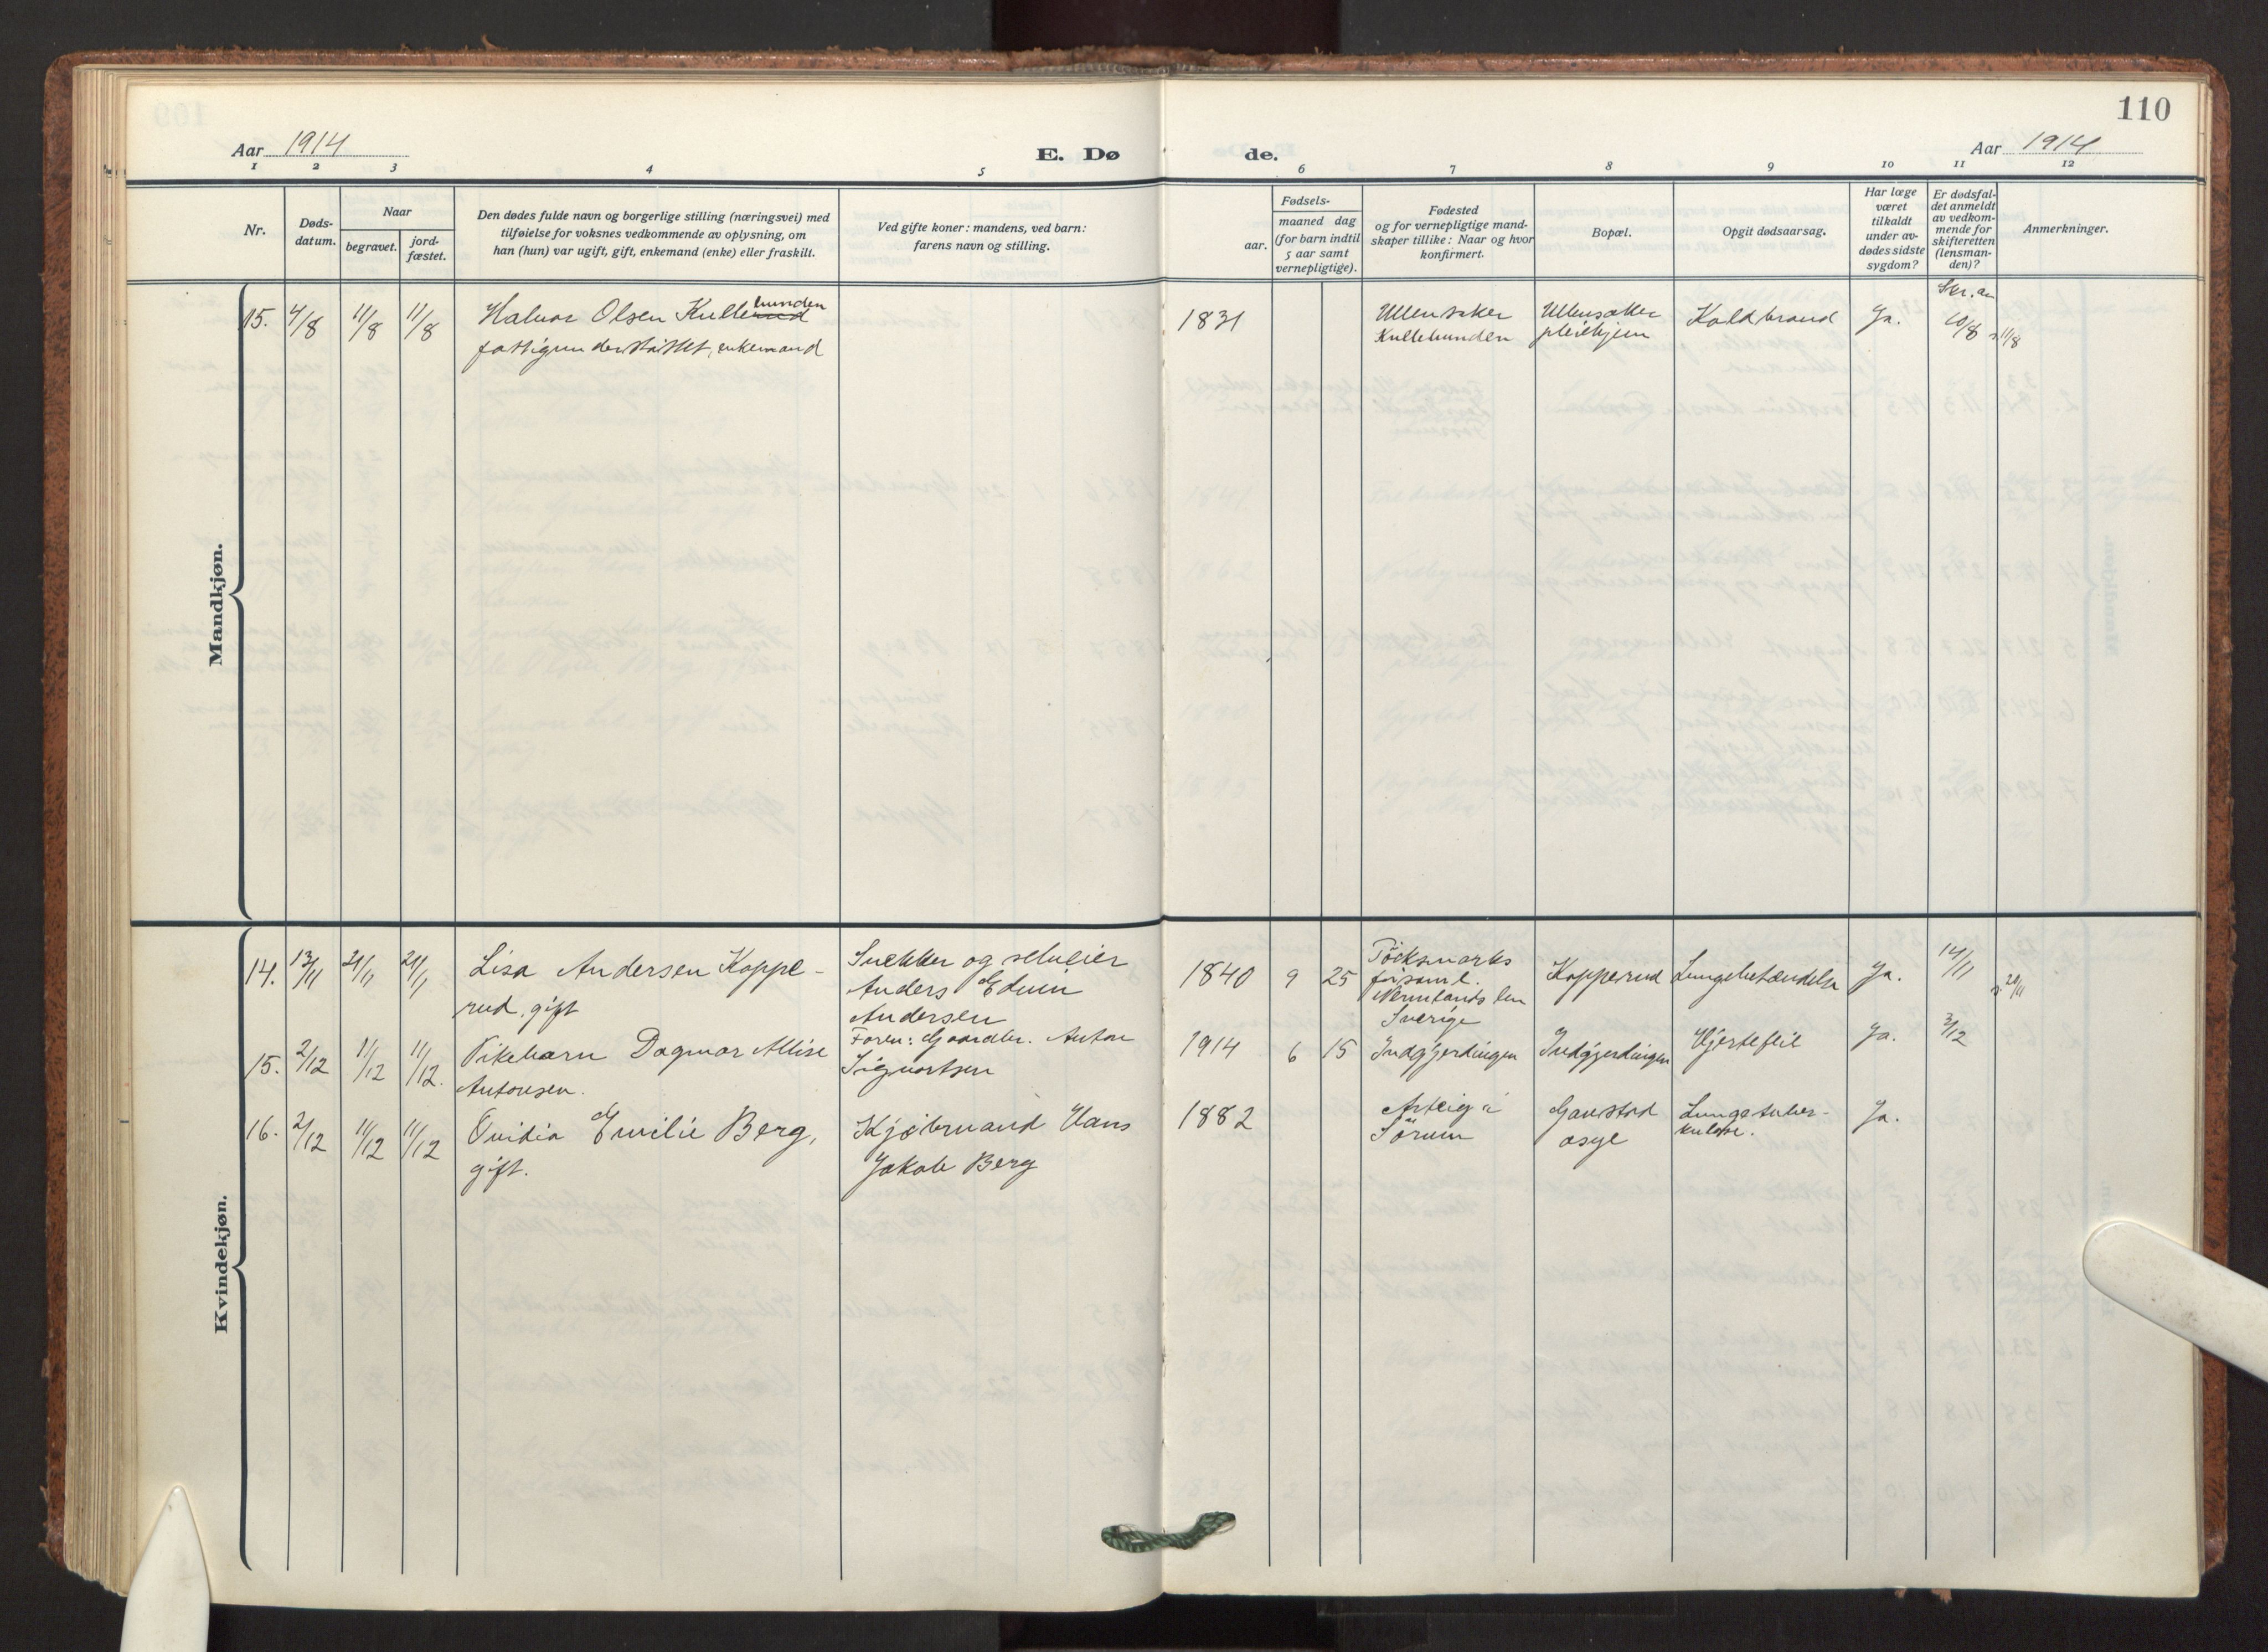 110
Aar 1914
E. Dø
de.
Aar 1914
1 2 3 4 5 6 7 8 9 10 11 12
Nr.
Døds-
datum.
Naar
begravet.
jord-
fæstet.
Den dødes fulde navn og borgerlige stilling (næringsvei) med
tilføielse for voksnes vedkommende av oplysning, om
han (hun) var ugift, gift, enkemand (enke) eller fraskilt.
Ved gifte koner: mandens, ved barn:
farens navn og stilling.
Fødsels-
aar.
maaned dag
(for barn indtil
5 aar samt
vernepligtige).
Fødested
og for vernepligtige mand-
skaper tillike: Naar og hvor
konfirmert.
Bopæl.
Opgit dødsaarsag.
Har læge
været
tilkaldt
under av-
dødes sidste
sygdom?
Er dødsfal-
det anmeldt
av vedkom-
mende for
skifteretten
(lensman-
den)?
Anmerkninger.
Mandkjøn.
15. 4/8 11/8 11/8
Halvor Olsen Kullerud
bunden
fattigunderstøttet, enkemand
1831
Ullensaker
Kullebunden
Ullensaker
pleiehjem
Koldbrand
Ja.
10/8
11/8
Kvindekjøn.
14. 13/11 21/11 21/11
Lisa Andersen Koppe-
rud, gift
Snekker og selveier
Anders Edvin
Andersen
1840 9 25
Töcksmarks
församl.
Vermlands len
Sverige
Kopperud
Lungebetændelse
Ja.
14/11
20/11
15. 2/12 11/12 11/12.
Pikebarn Dagmar Alise
Antonsen.
Faren: Gaardbr. Anton
Sigvartsen
1914 6 15
Indgjerdingen
Indgjerdingen
Hjertefeil
Ja.
3/12
16. 2/12 11/12 11/12
Ovidia Emilie Berg,
gift.
Kjøbmand Hans
Jakob Berg
1882
Arteig i
Sörum
Gaustad
asyl
Lungetuber-
kulose.
Ja.